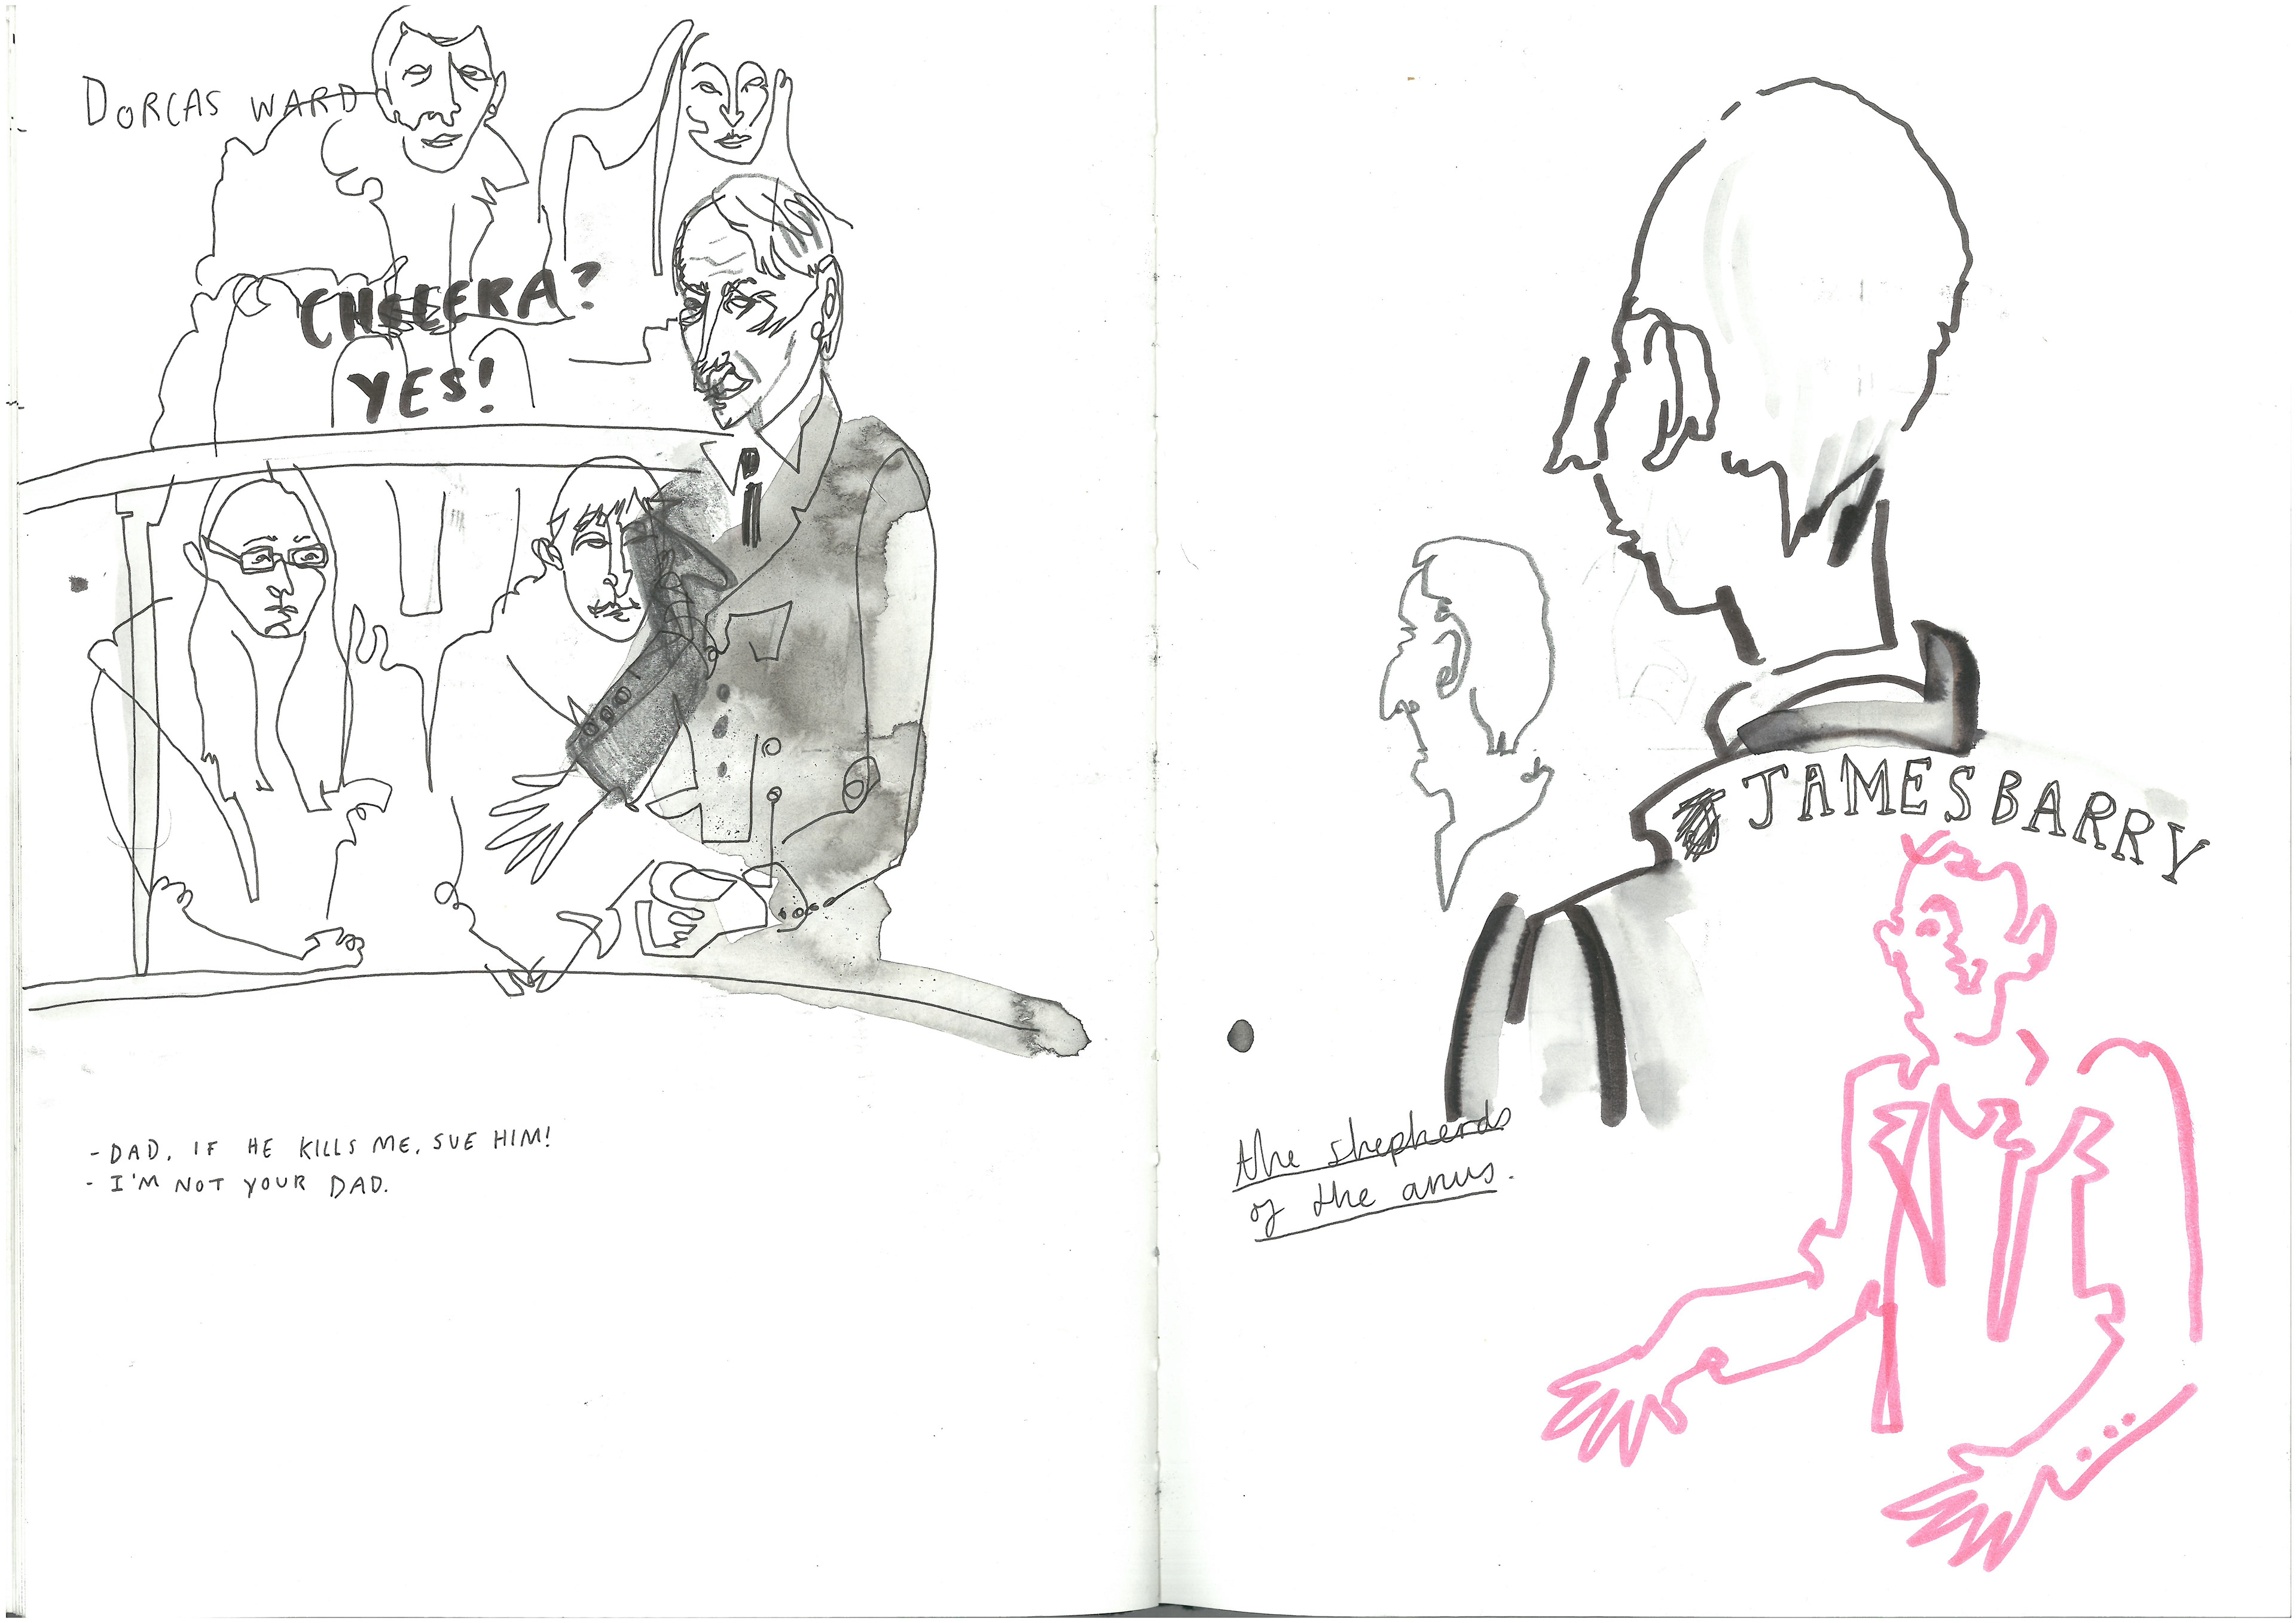 DORCAS WARD
CHOLERA?
YES!
- DAD, IF HE KILLS ME, SUE HIM!
- I'M NOT YOUR DAD.
JAMES BARRY
the shepherds
of the anus.